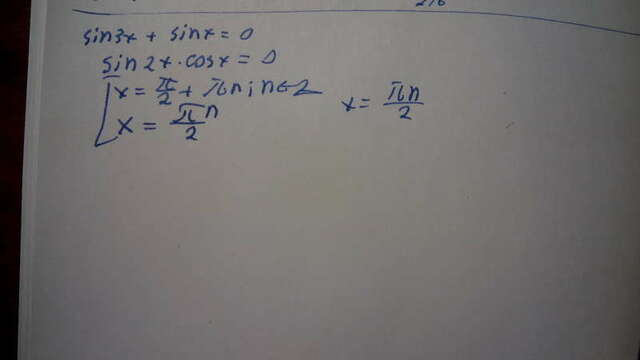 sin3x + sinx = 0
sin2x · cosx = 0
x = π/2 + πn; n∈Z
x = πn/2
x = πn/2